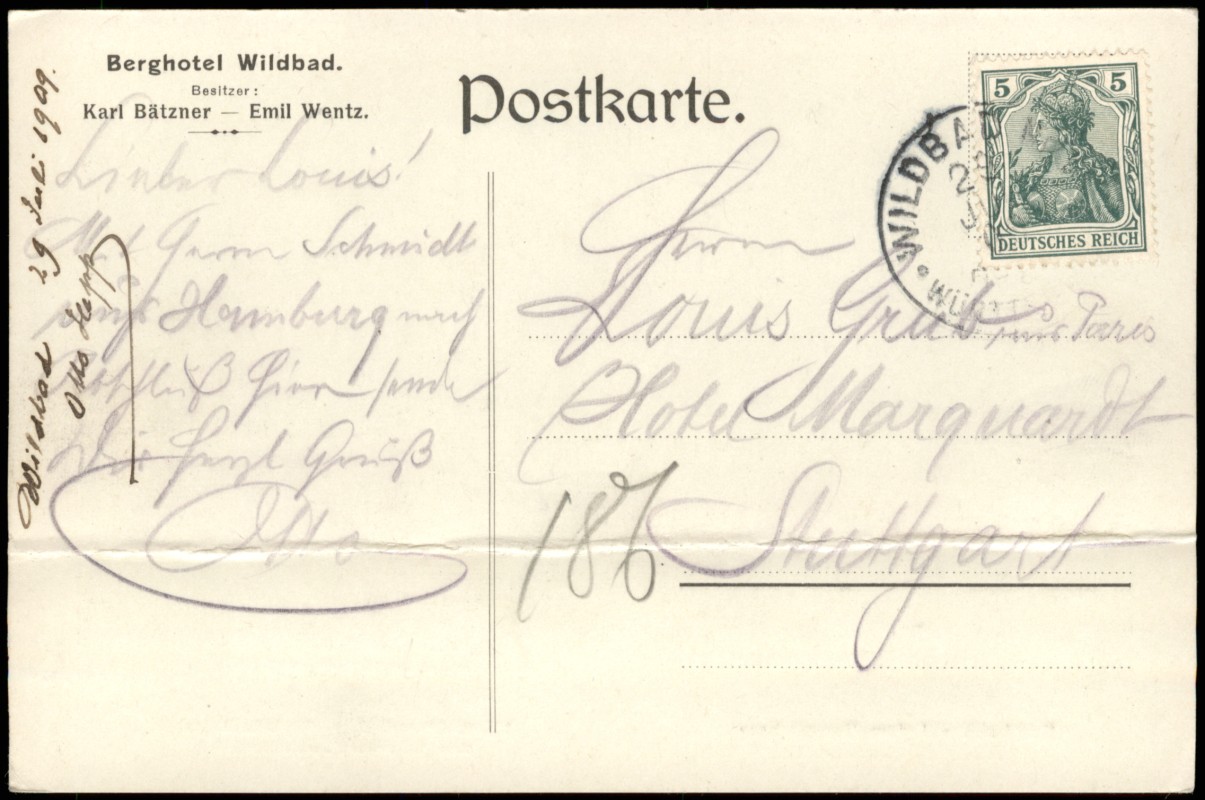 Berghotel Wildbad.
Besitzer:
Karl Bätzner — Emil Wentz.
Postkarte.
5 5
DEUTSCHES REICH
WILDBAD
WÜRTT
Wildbad 29 Juli 1909.
Otto Hepp
Lieber Louis!
Mit Herrn Schmidt
aus Hamburg nach
hier sende
Dir herzl Gruß
Otto
Herrn
Louis Grub aus Paris
Hotel Marquardt
Stuttgart
186